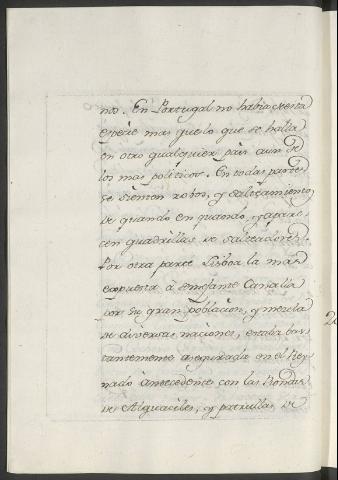 nos. En Portugal no había en esta
especie mas que lo que se halla
en otro qualquier pais aun de
los mas politicos. En todas partes
se sienten robos, y salteamientos
de quando en quando, y apare-
cen quadrillas de Salteadores.
Por otra parte Lisboa la mas
expuesta á semejante Canalla
por su gran poblacion, y mezcla
de diversas naciones, estaba bas-
tantemente asegurada en el Rey-
nado antecedente con las Rondas
de Alguaciles, y patrullas de
2